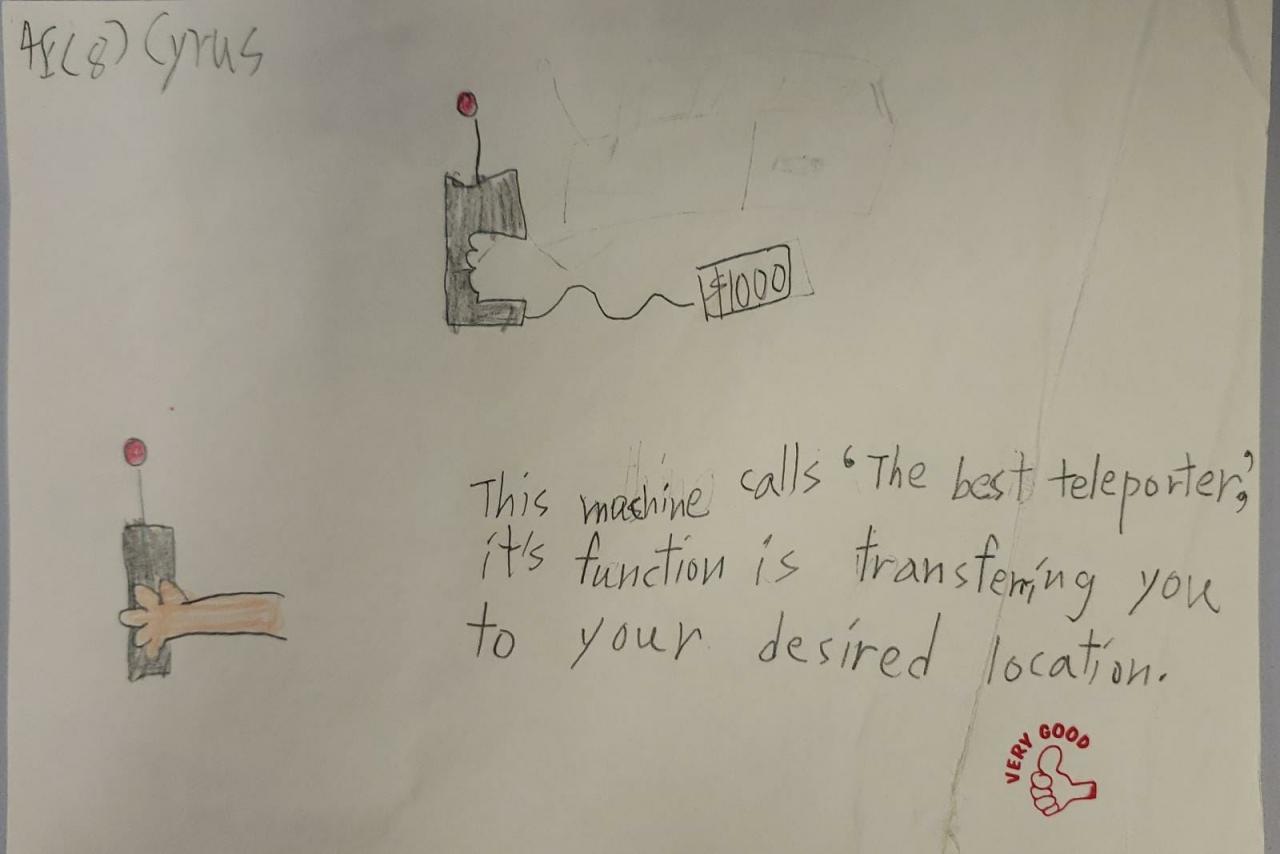 4E(8) Cyrus
$1000
This machine calls ‘The best teleporter’,
it's function is transferring you
to your desired location.
VERY GOOD